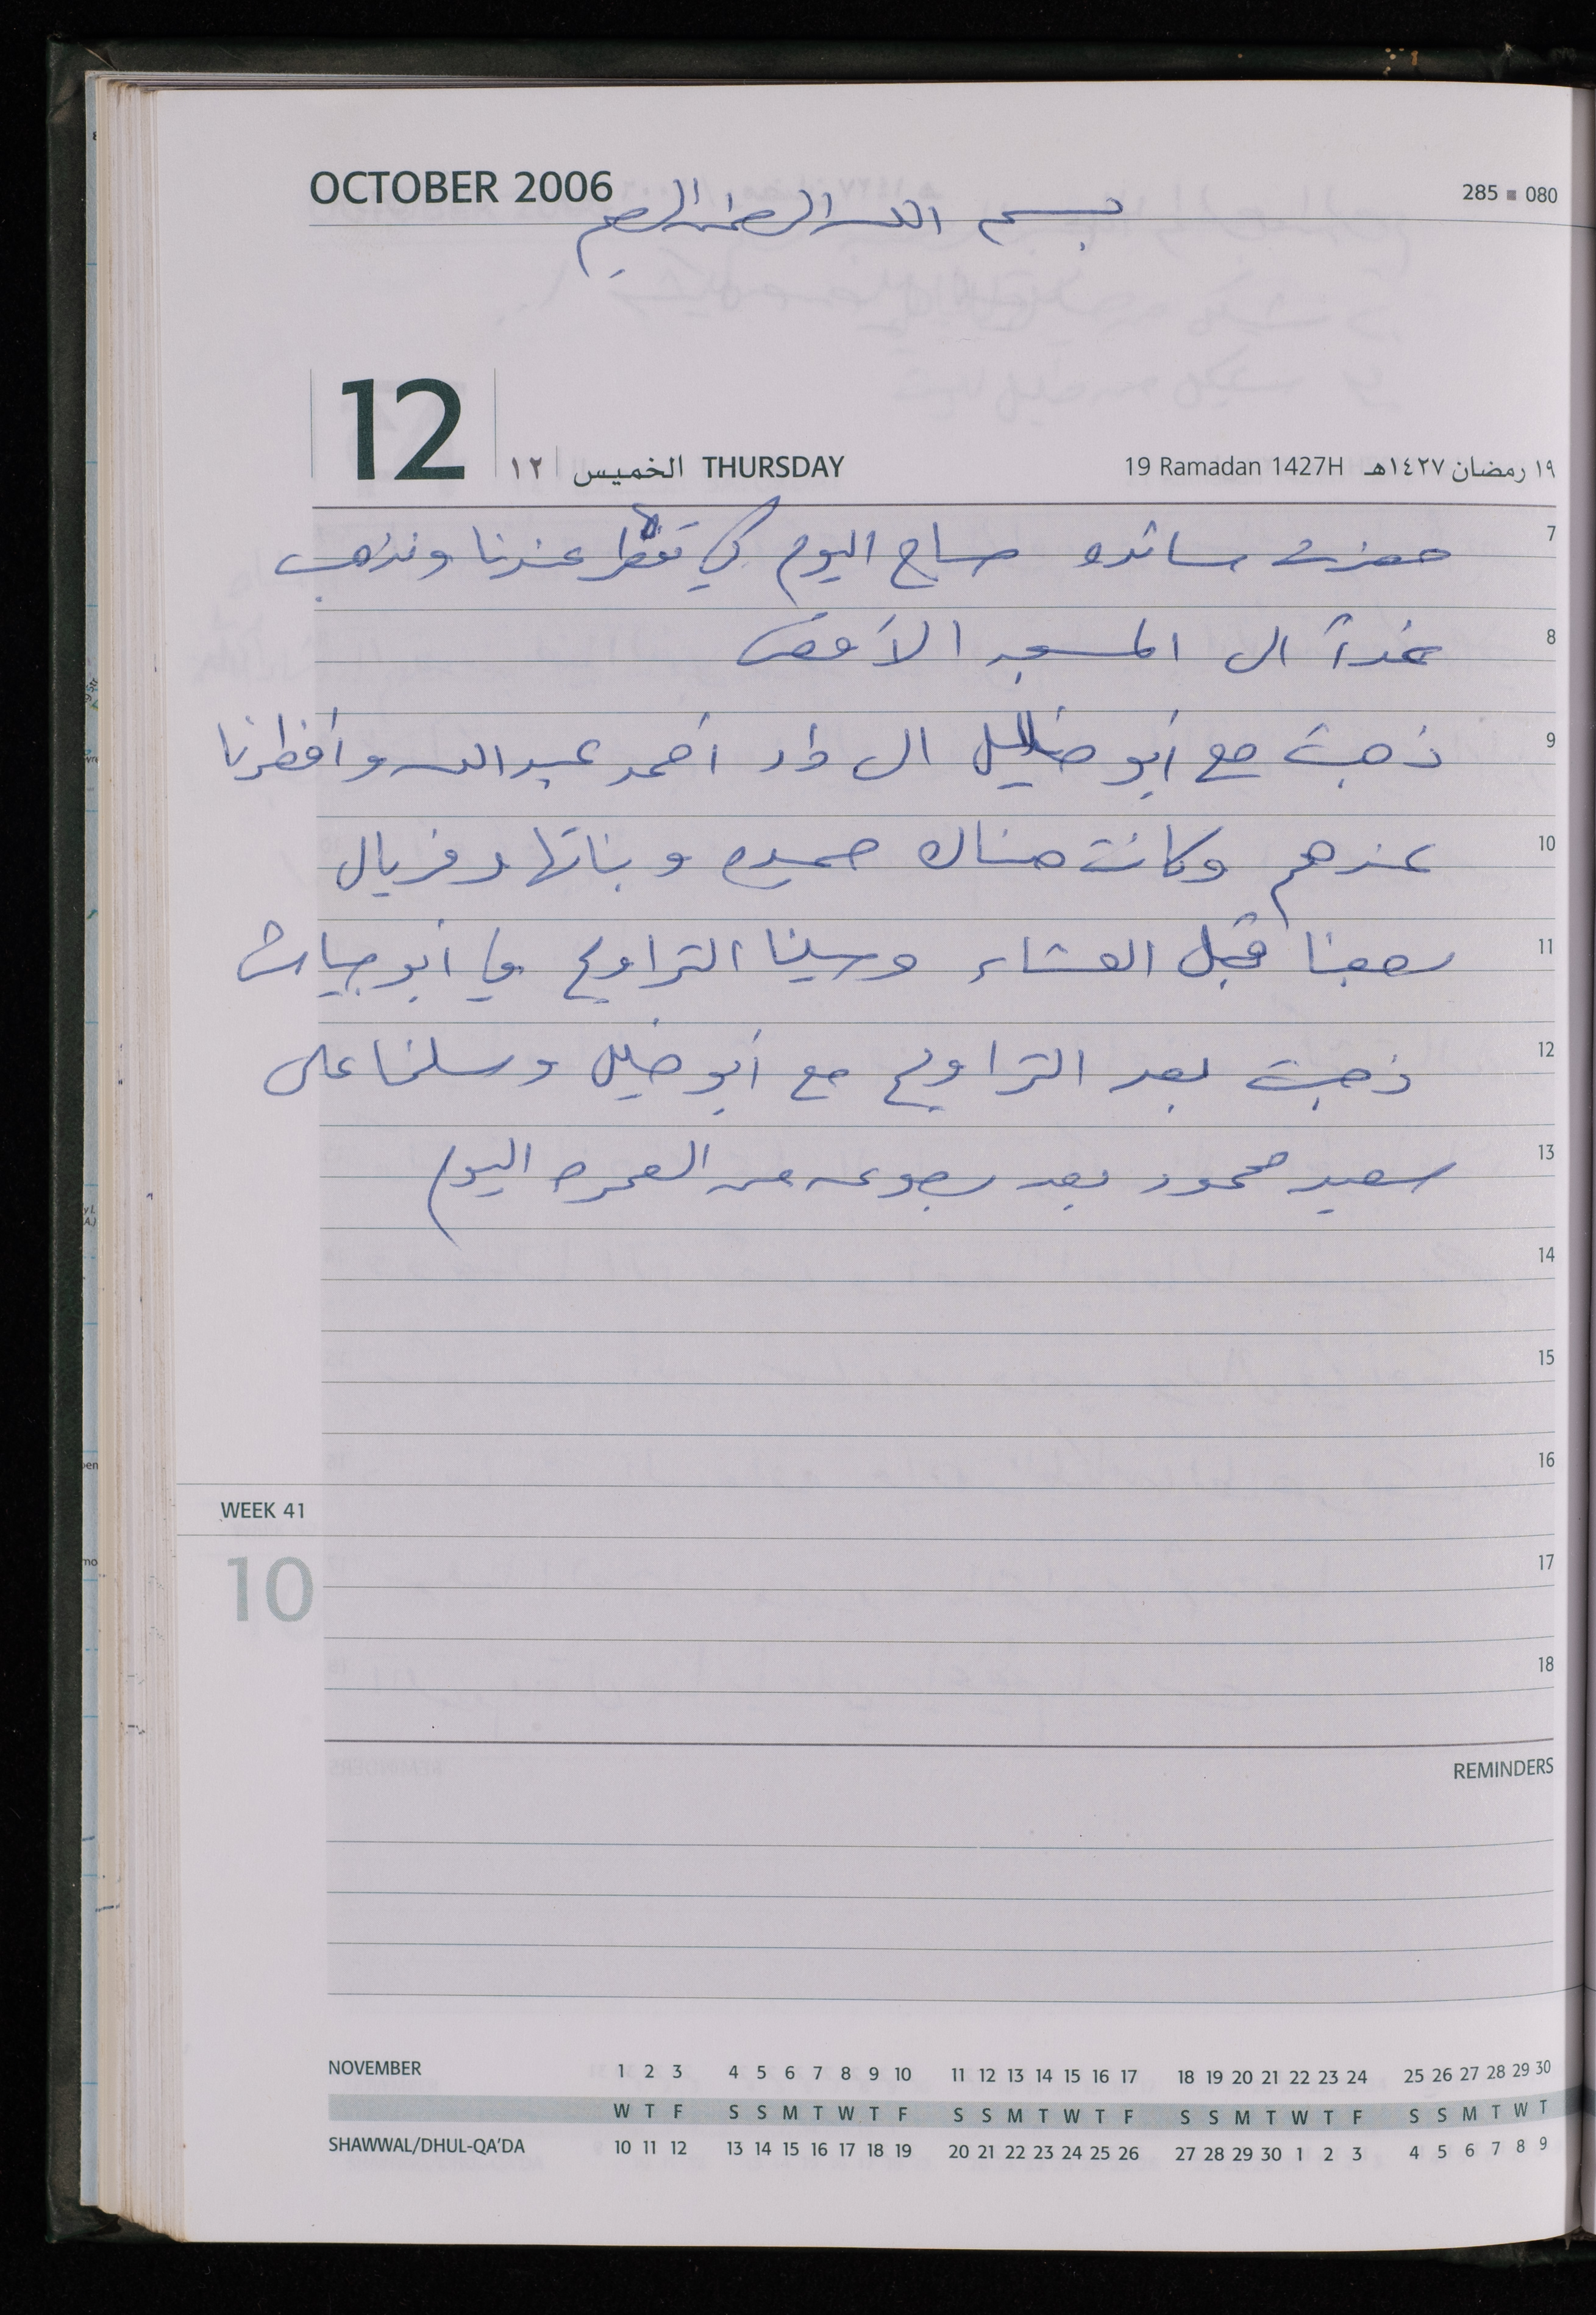 OCTOBER 2006
285 ■ 080
بسم الله الرحمن الرحيم
12
١٢ الخميس THURSDAY
19 Ramadan 1427H ١٩ رمضان ١٤٢٧هـ
7 حضرت ساتده صباح اليوم كي تفطر عندنا ونذهب
8 غداً الى المسجد الأقصى
9 ذهبت مع أبو خليل الى دار أحمد عبدالله وأفطرنا
10 عندهم وكانت هناك حميده وبناتها وفريال
11 رجعنا قبل العشاء وصلينا التراويح في أبو
12 ذهبت بعد التراويح مع أبو خليل وسلمنا على
13 سعيد محمود بعد رجوعه من العمره اليوم
14
15
16
WEEK 41
10
17
18
REMINDERS
NOVEMBER 1 2 3 4 5 6 7 8 9 10 11 12 13 14 15 16 17 18 19 20 21 22 23 24 25 26 27 28 29 30
W T F S S M T W T F S S M T W T F S S M T W T F S S M T W T
SHAWWAL/DHUL-QA'DA 10 11 12 13 14 15 16 17 18 19 20 21 22 23 24 25 26 27 28 29 30 1 2 3 4 5 6 7 8 9